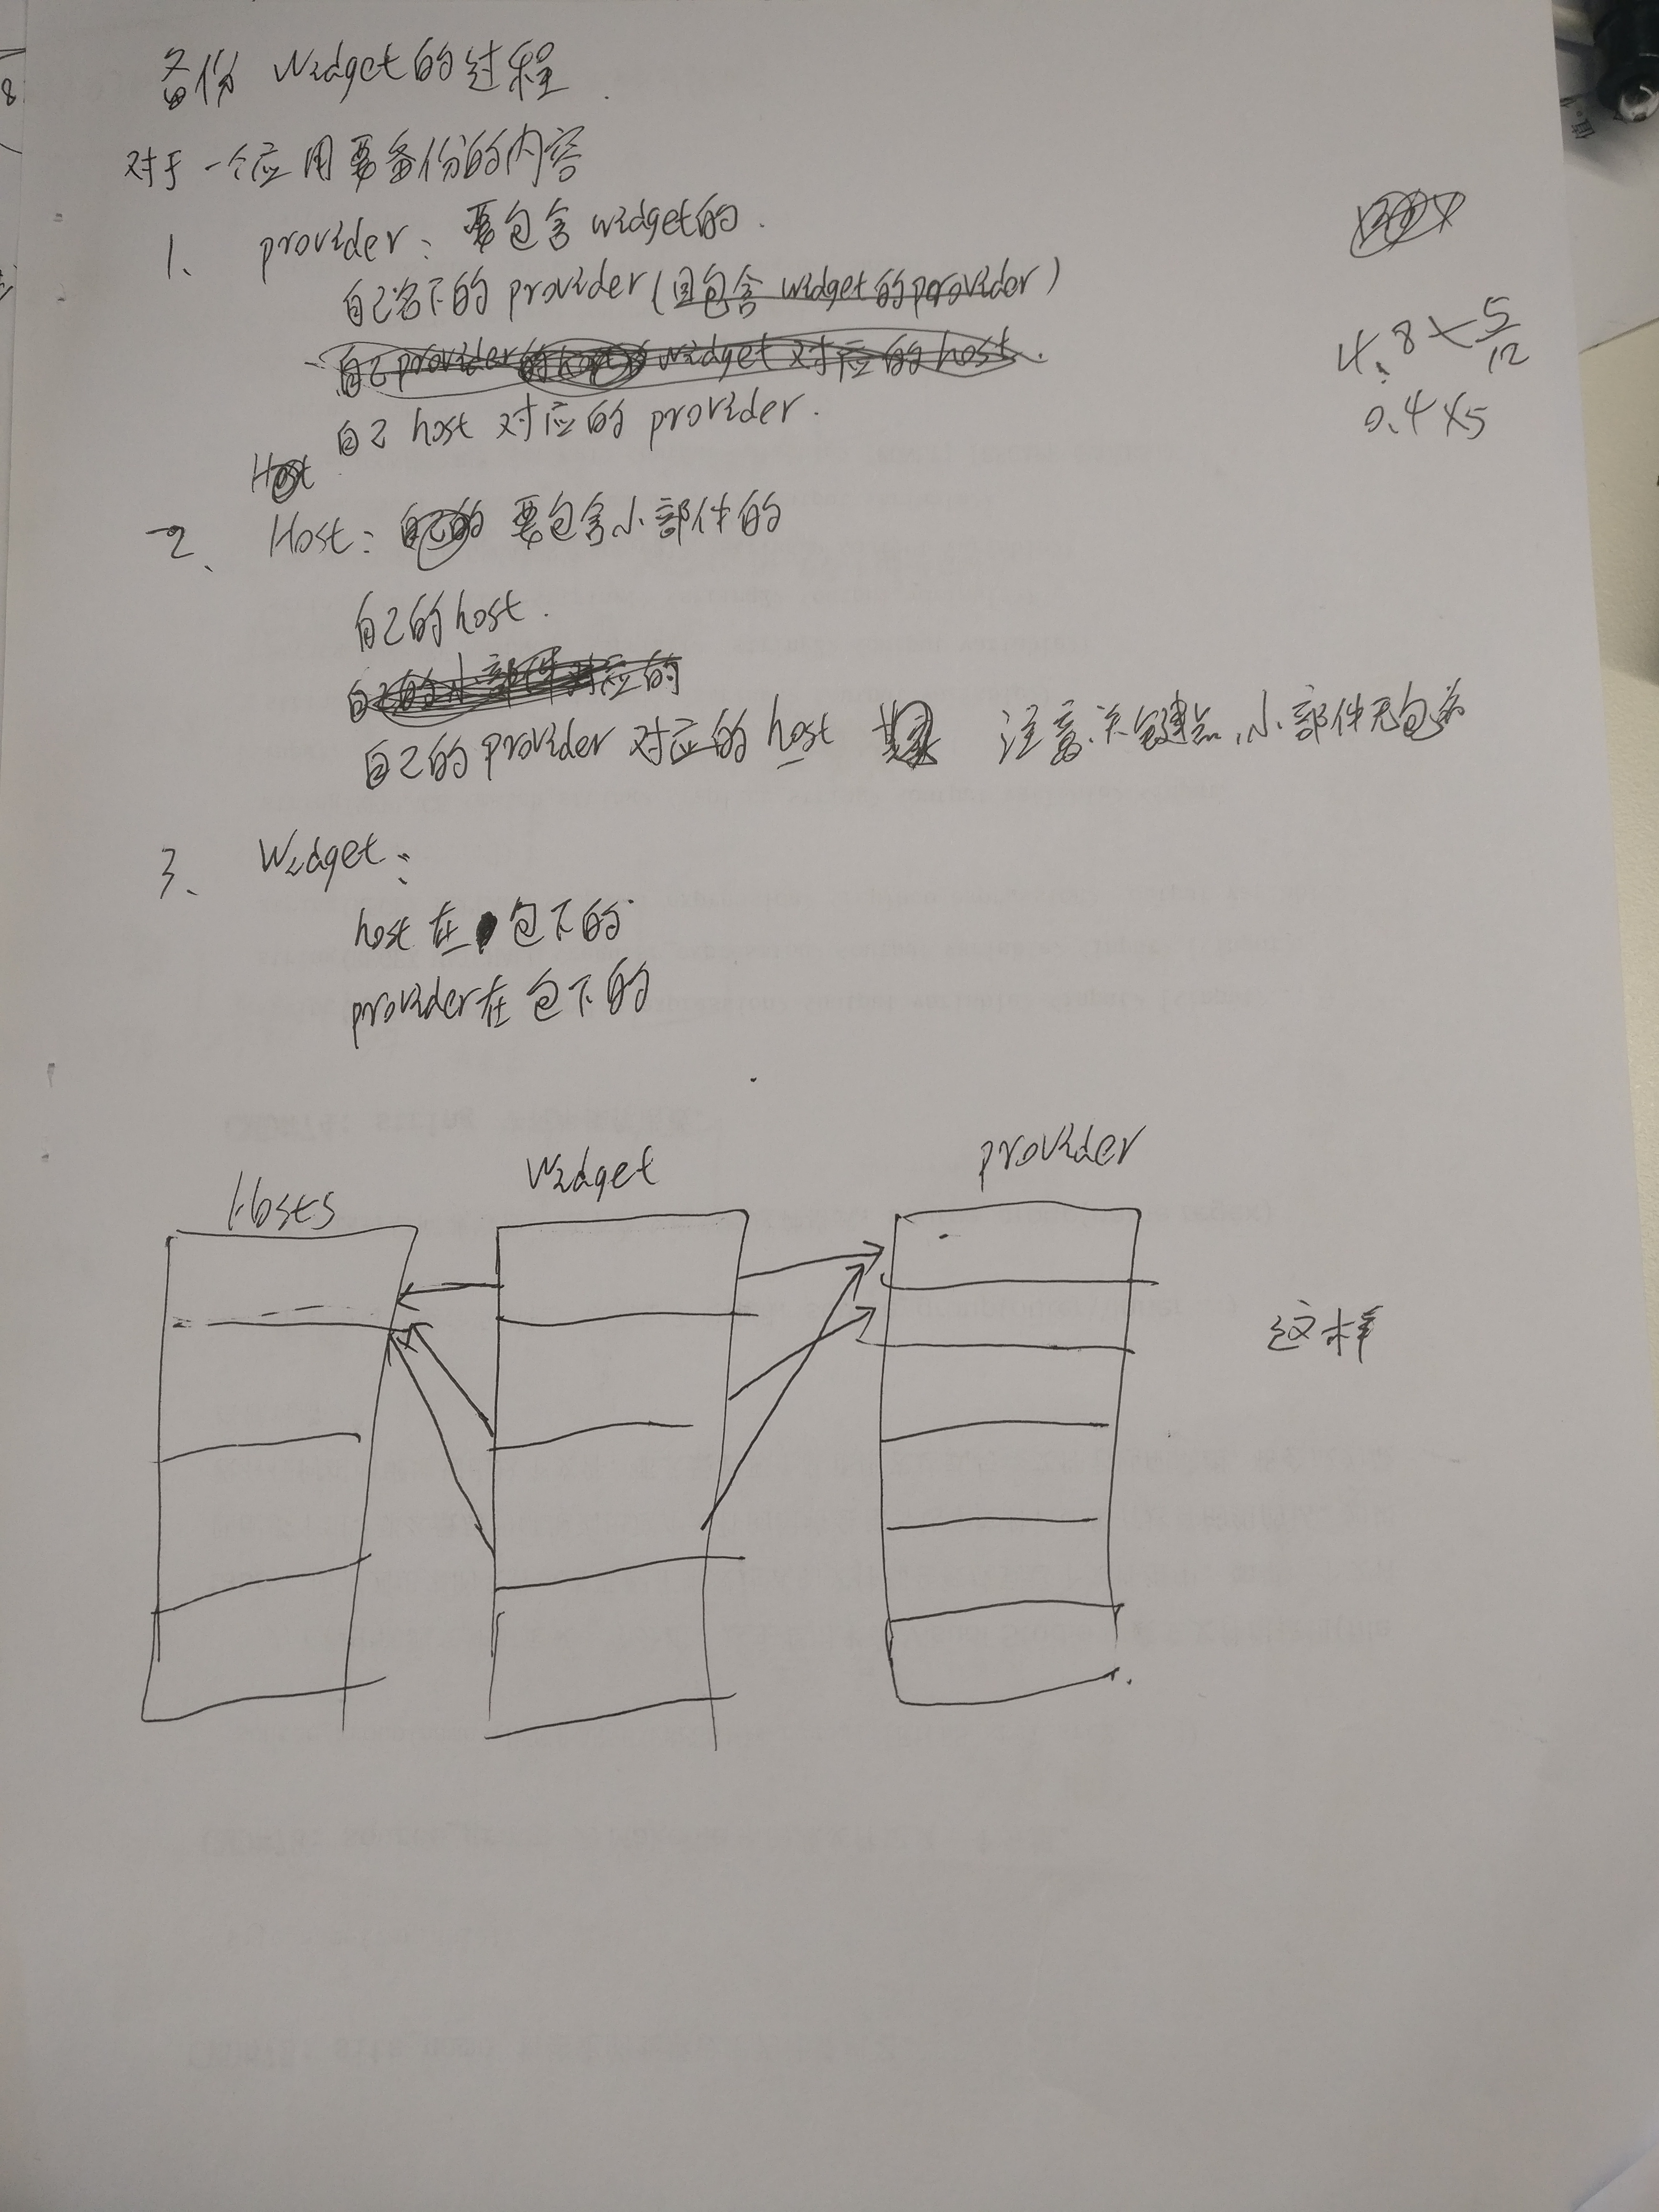 备份 Widget的过程.
对于一个应用要备份的内容
1、 provider: 要包含 widget的.
自己名下的 provider (且包含 widget的provider)
自己provider widget 对应的 host.
自己 host 对应的 provider.
Host
2、 Host: 自己的 要包含小部件的
自己的host.
自己的小部件对应的
自己的 provider 对应的 host 注意关键点,小部件无包名
3、 Widget:
host 在 包下的
provider在包下的
4.8×5/12
0.4×5
Hosts
Widget
provider
这样
8